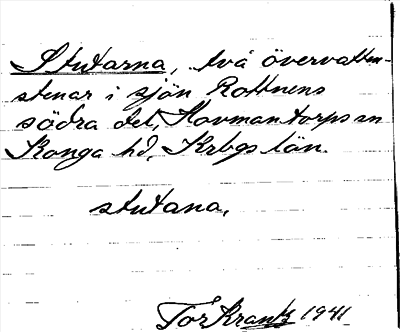 Stutarna, två övervatten-
stenar i sjön Rottnens
södra del, Hovmantorps sn
Konga hd, Krbgs län.
stutana,
Tor Krantz 1941